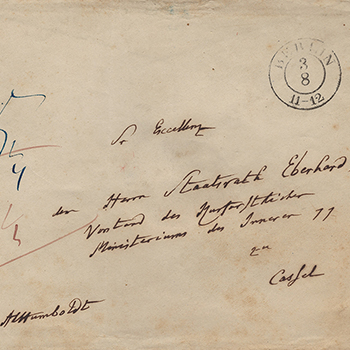 BERLIN
3
8
11-12
Sr Excellenz
den Herrn Staatsrath Eberhard
Vorstand des Kurfürstlicher
Ministeriums des Inneren
zu
Cassel
AvHumboldt